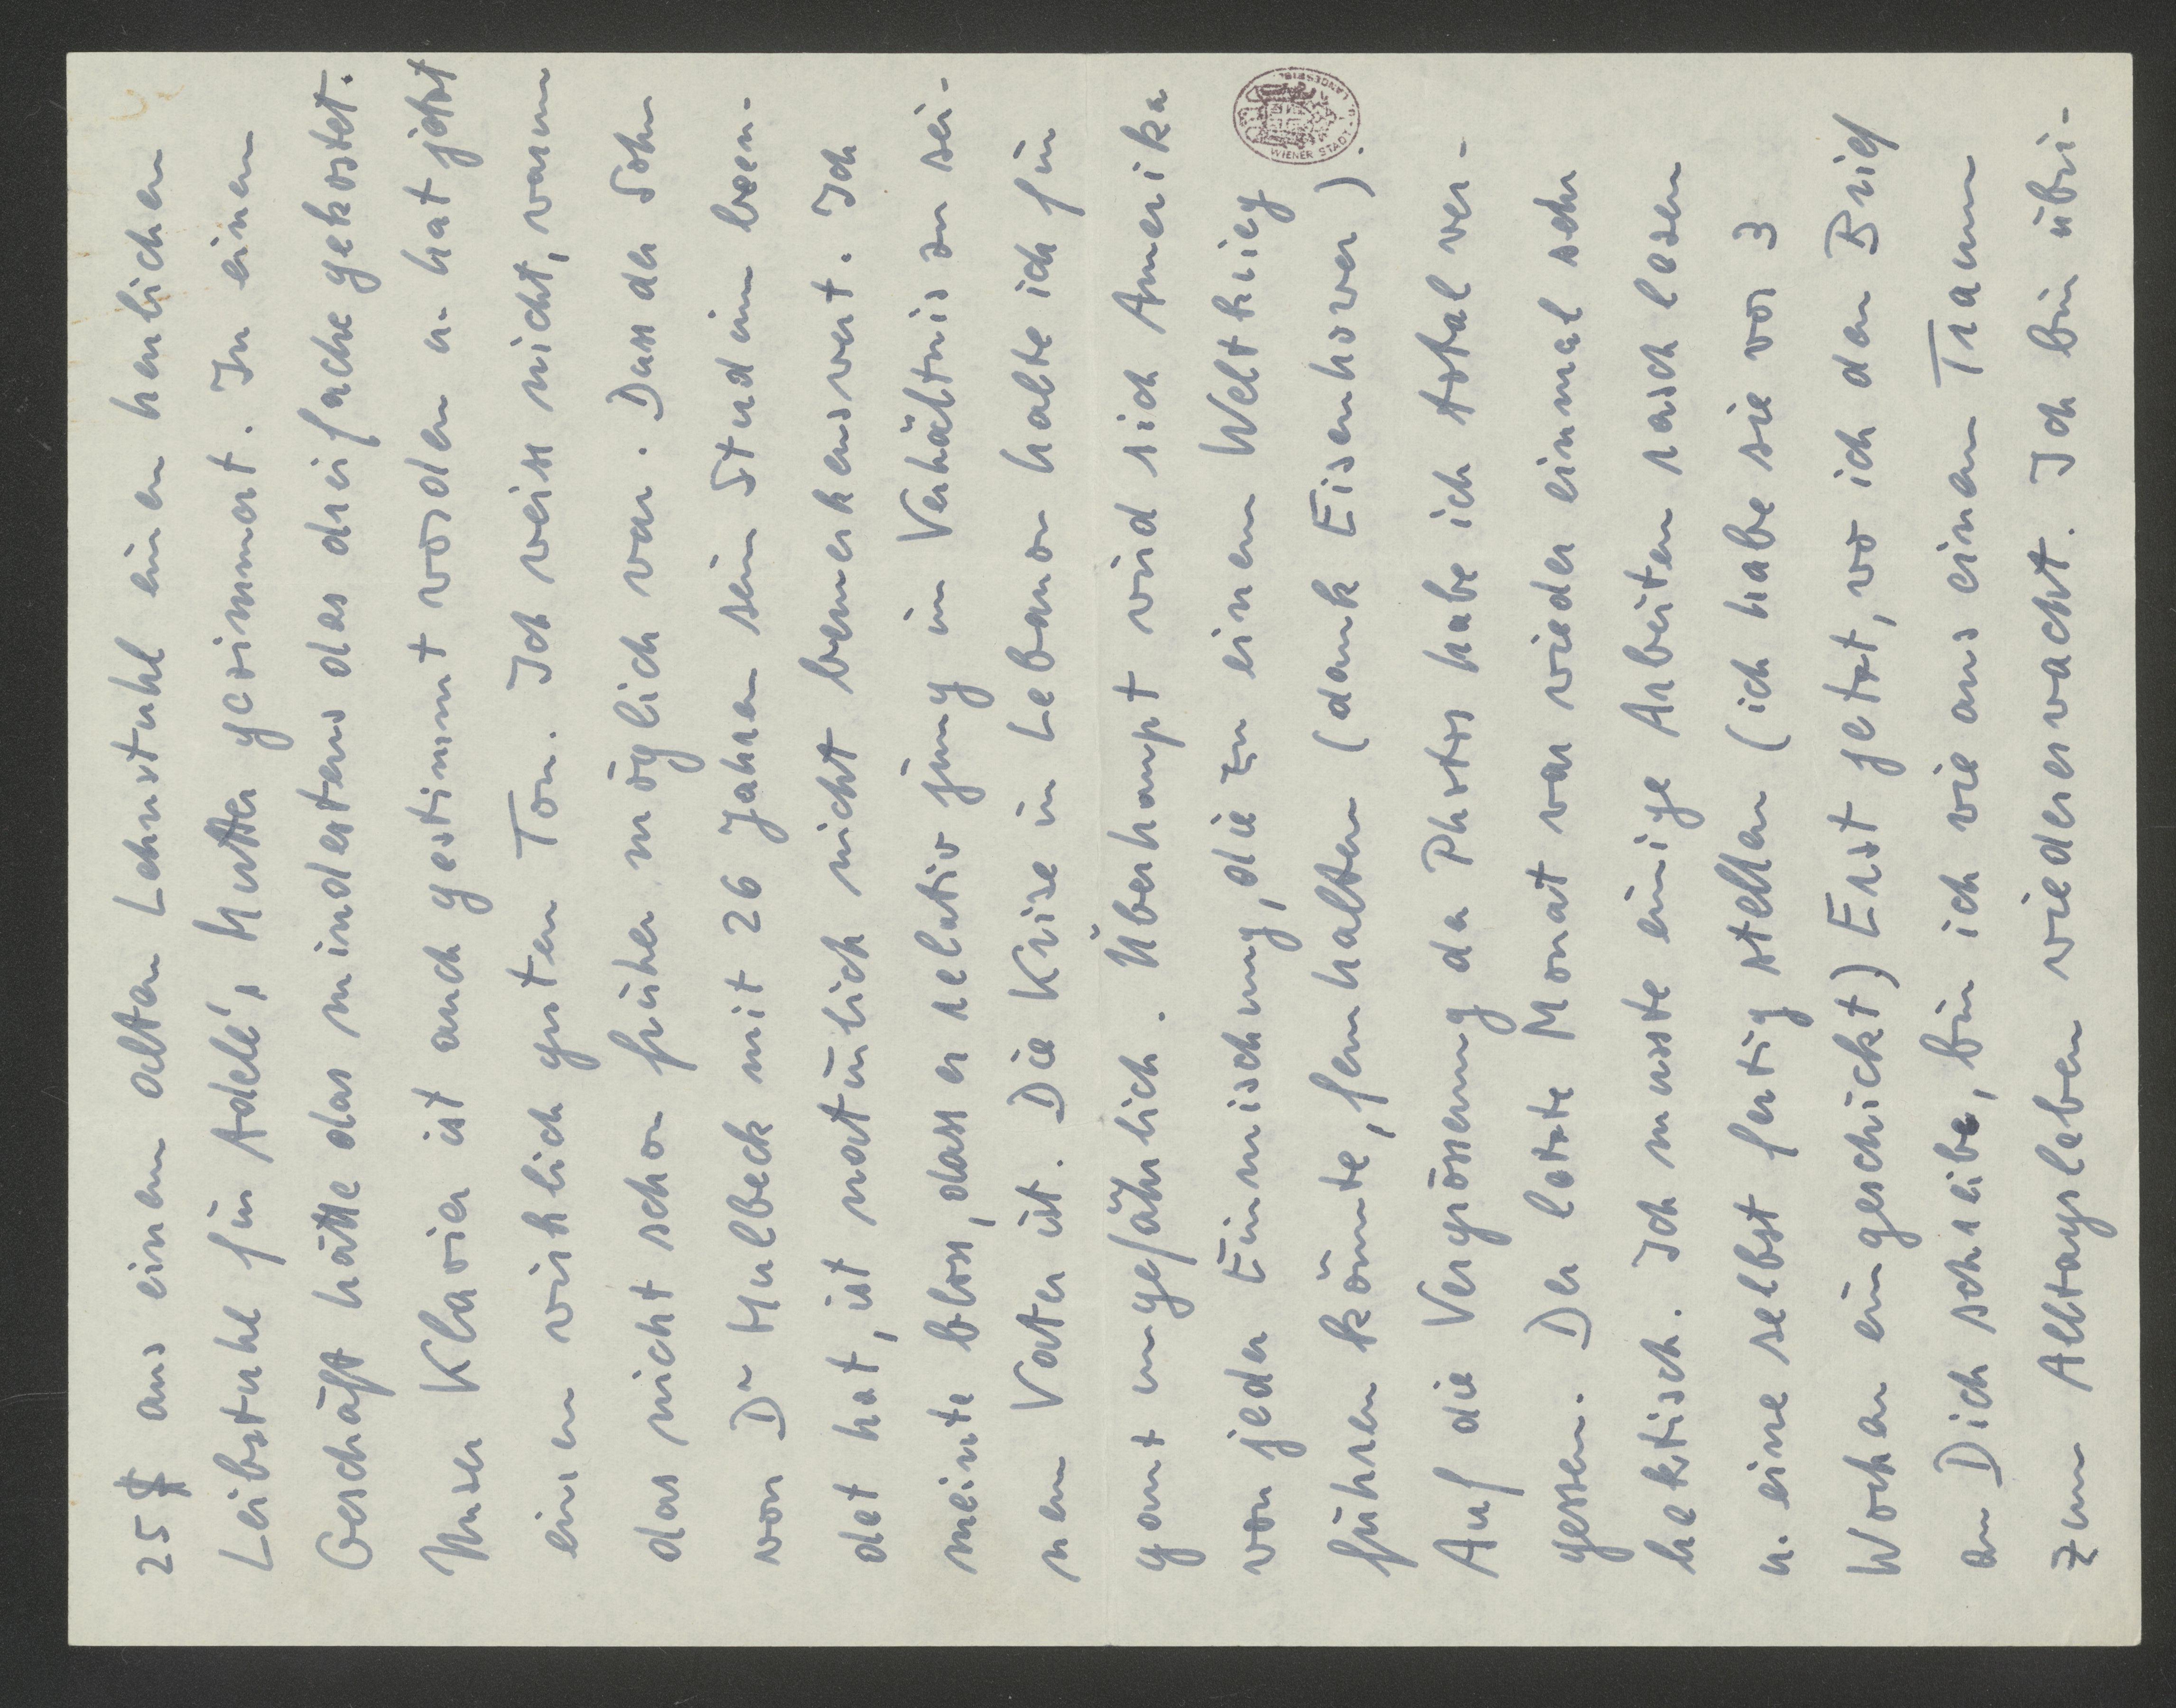 25 $ aus einem alten Lehnstuhl einen herrlichen
Leibstuhl für Adele's Mutter gezimmert. In einem
Geschäft hätte das mindestens das dreifache gekostet.
Unser Klavier ist auch gestimmt worden u. hat jetzt
einen wirklich guten Ton. Ich weiss nicht, warum
das nicht schon früher möglich war. Dass der Sohn
von Dr Hulbeck mit 26 Jahren sein Studium been-
det hat, ist natürlich nicht bemerkenswert. Ich
meinte bloss, dass er relativ jung im Verhältnis zu sei-
nem Vater ist. Die Krise im Lebanon halte ich für
ganz ungefährlich. Überhaupt wird sich Amerika
von jeder Einmischung, die zu einem Weltkrieg
führen könnte, fernhalten (dank Eisenhower).
Auf die Vergrösserung der Photos habe ich total ver-
gessen. Der letzte Monat war wieder einmal sehr
hektisch. Ich musste einige Arbeiten rasch lesen
u. eine selbst fertig stellen (ich habe sie vor 3
Wochen eingeschickt) Erst jetzt, wo ich den Brief
an Dich schreibe, bin ich wie aus einem Traum
zum Alltagsleben wiedererwacht. Ich bin übri-
WIENER STADT- U. LANDESBIBL.